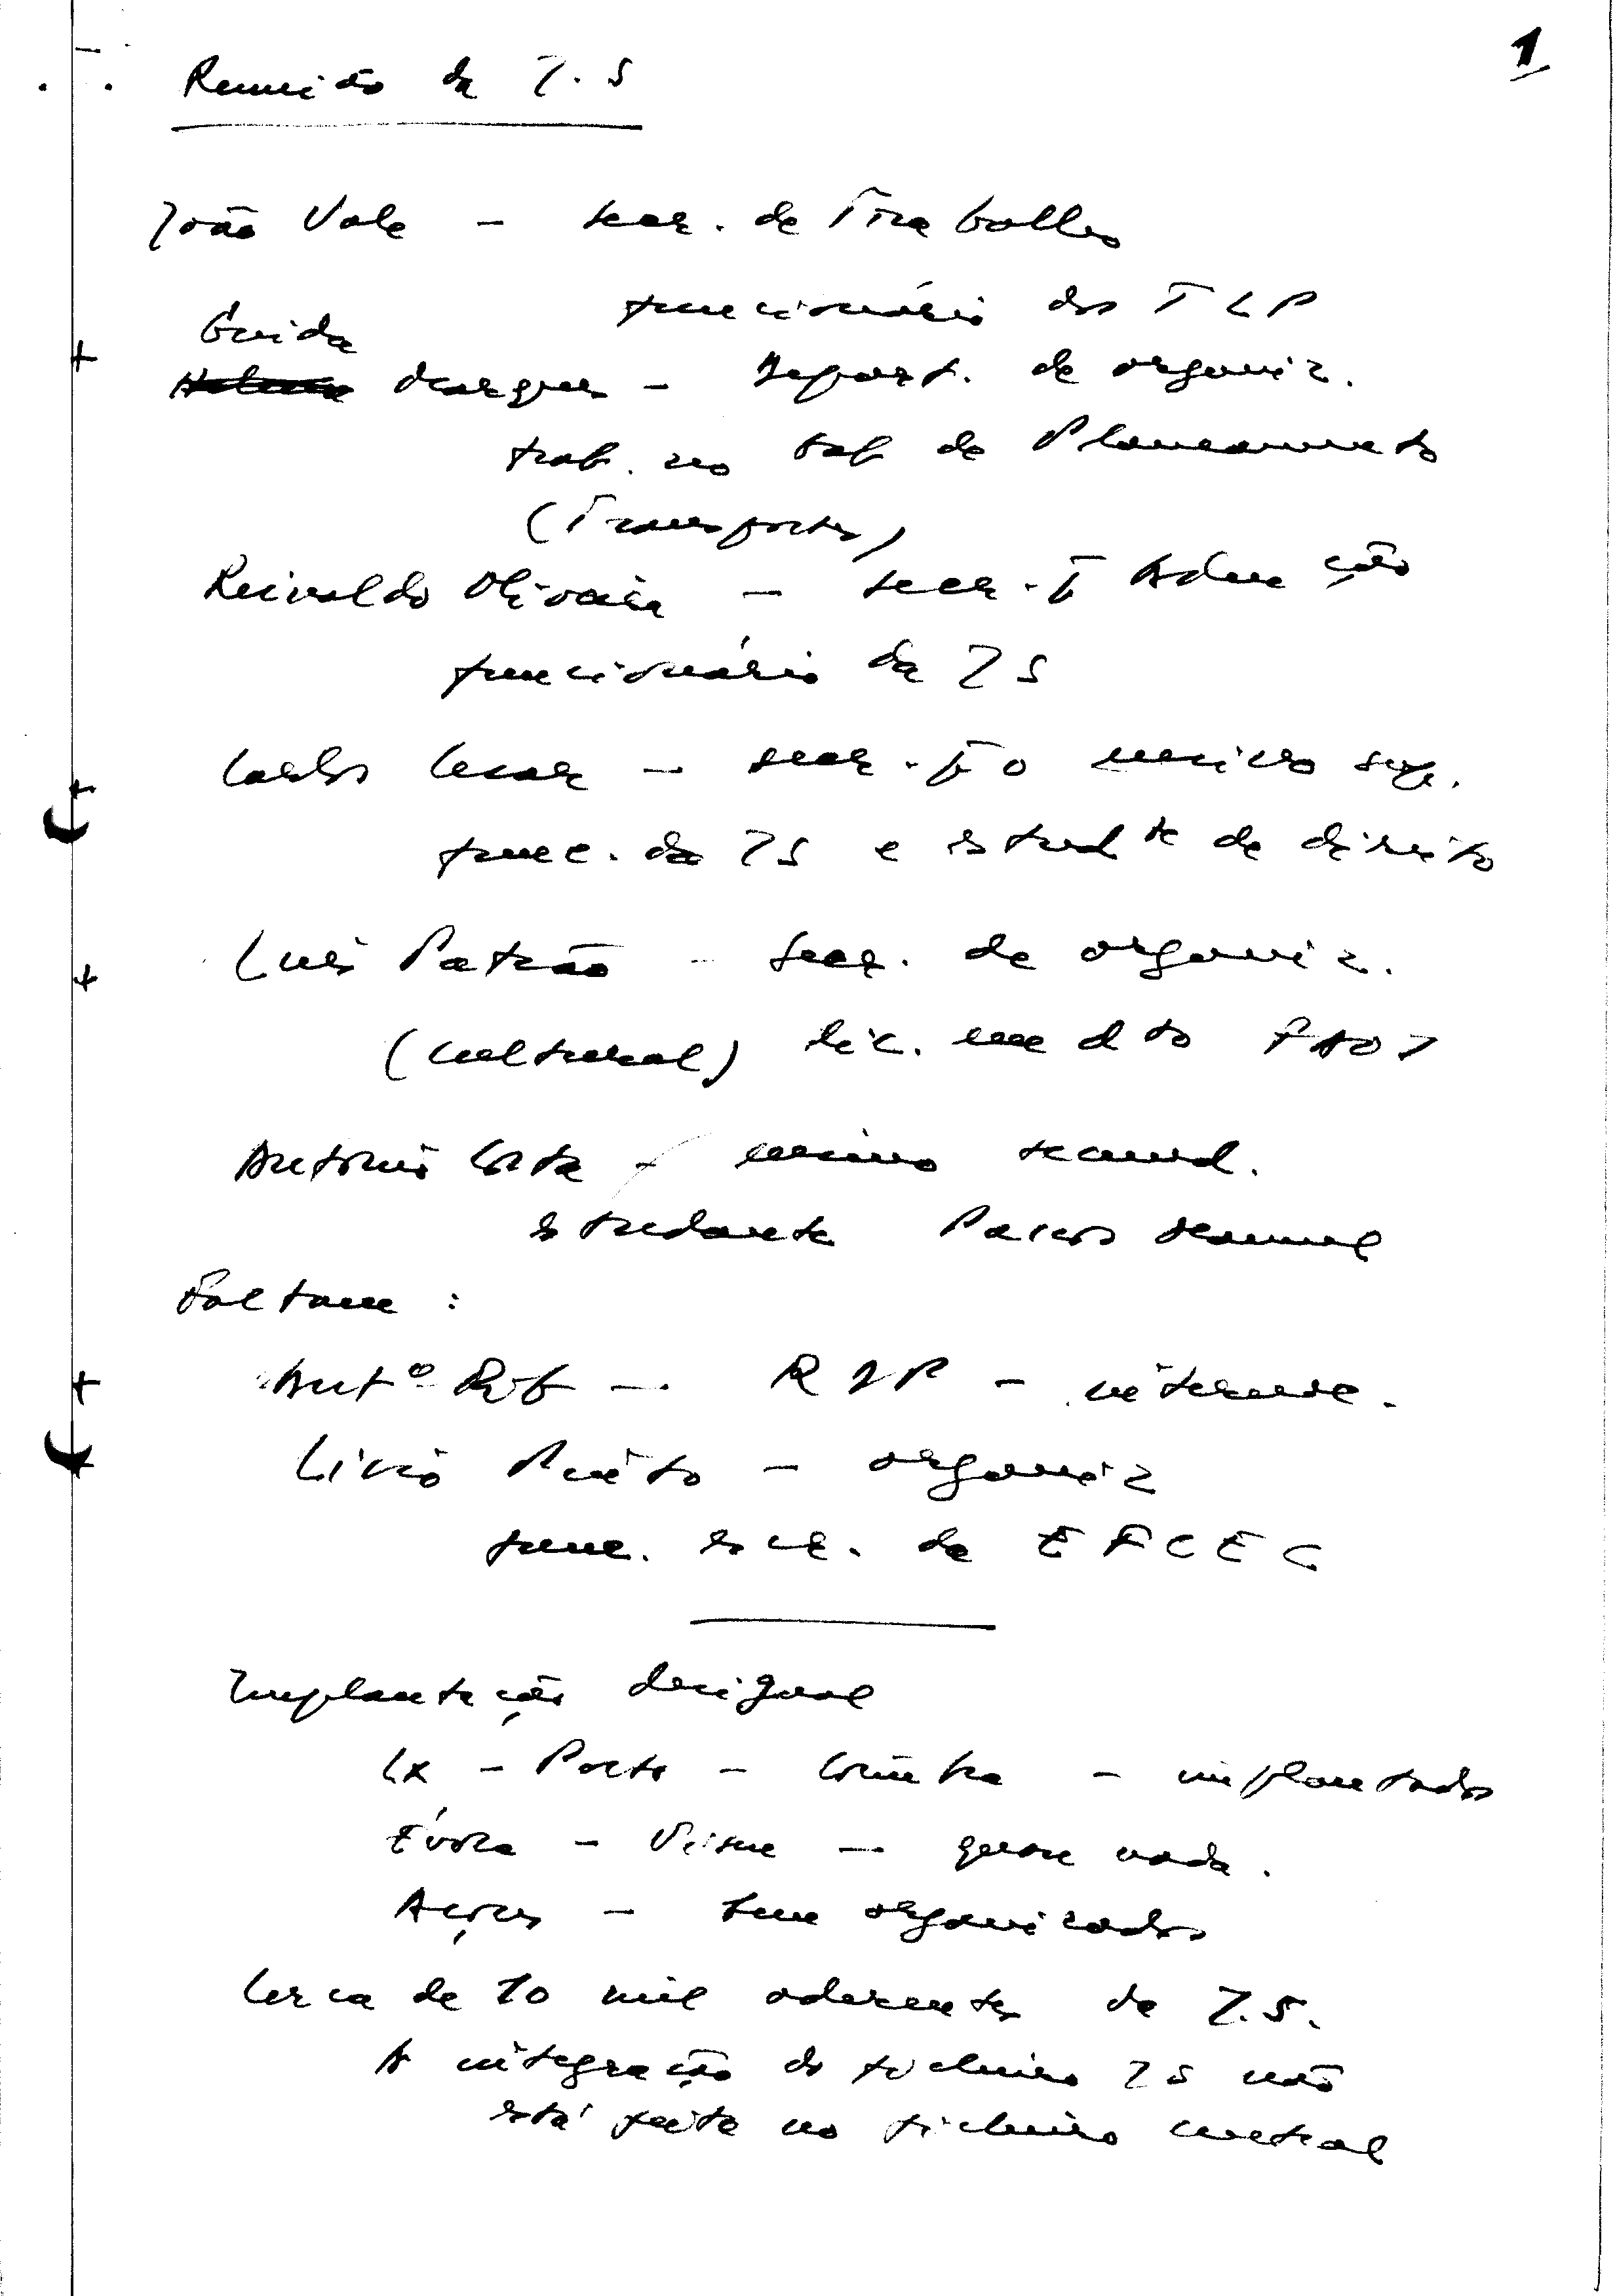 1
Reunião da J.S
João Vale - secr. de Trabalho
funcionário dos TLP
Guida
Marques - Depart. de organiz.
trab. no Gab de Planeamento
(Transportes)
Reinaldo Oliveira - secr. p Educação
funcionário da JS
Carlos César - secr. p o ensino sup.
func. da JS e estudte de direito
Luís Patrão - secr. de organiz.
(cultural) lic. em dto FAOJ
António Costa - ensino secund.
estudante Passos Manuel
Faltam:
Antº Reb - RI - interna.
Lívio Prieto - organiz
func. da EFCEC
Implantação desigual
Lx - Porto - Coimbra - implantados
Évora - Viseu - quase nada.
Açores - bem organizados
Cerca de 10 mil aderentes da J.S.
A integração do ficheiro JS não
está feita no ficheiro central